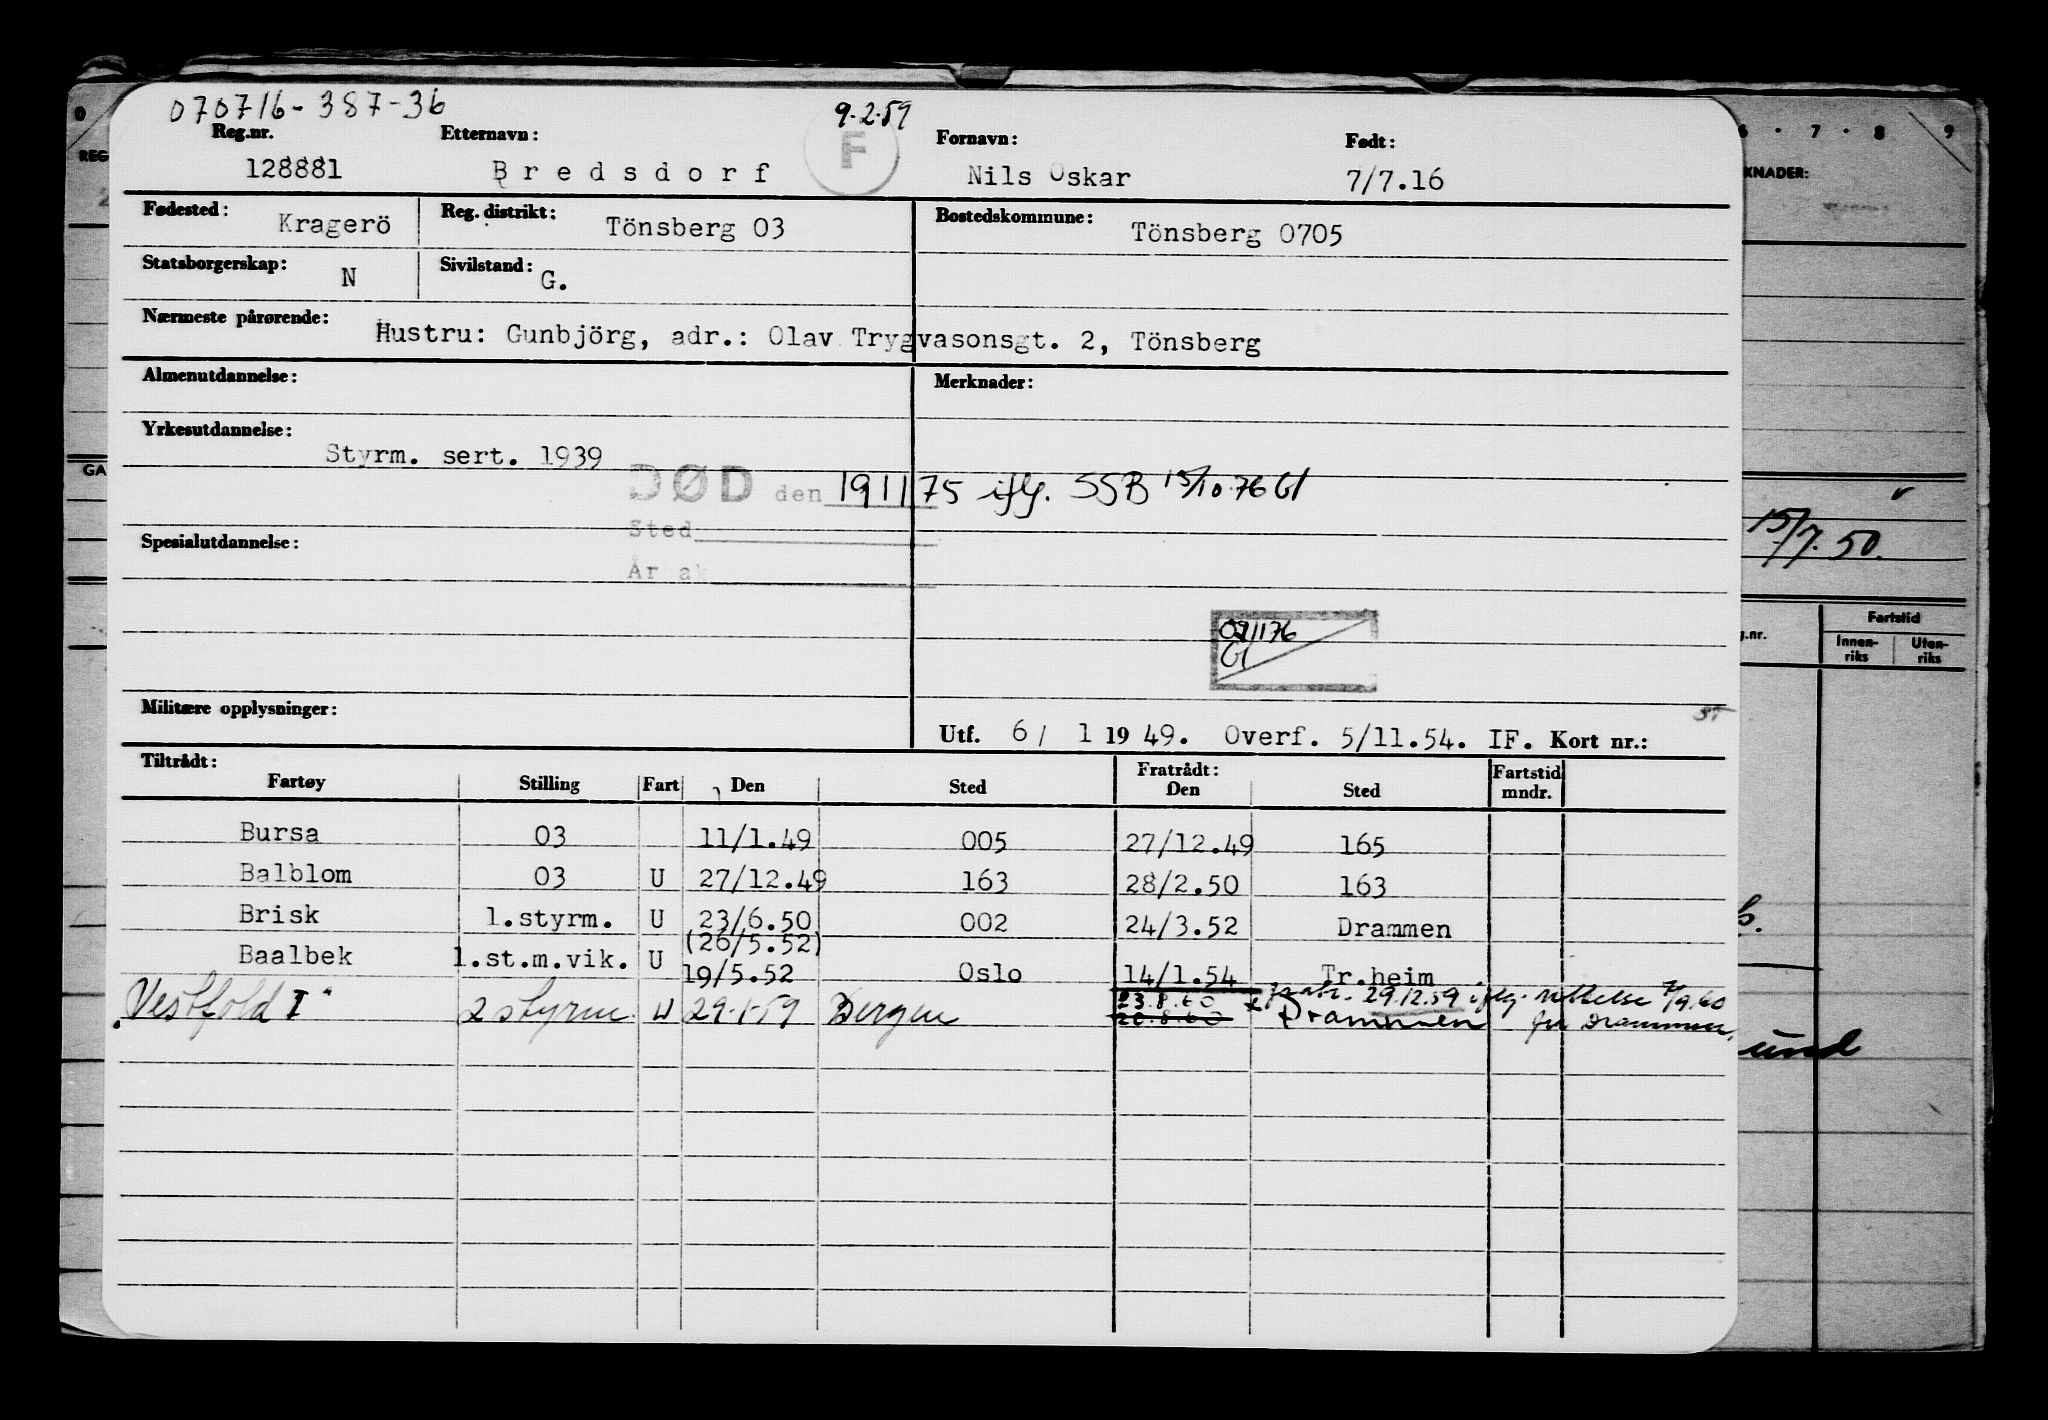 070716-387-36 9.2.59
Reg.nr. Etternavn: F Fornavn: Født:
128881 Bredsdorf Nils Oskar 7/7.16
Fødested: Kragerö Reg. distrikt: Tönsberg 03 Bostedskommune: Tönsberg 0705
Statsborgerskap: N Sivilstand: G.
Nærmeste pårørende: Hustru: Gunbjörg, adr.: Olav Trygvasonsgt. 2, Tönsberg
Almenutdannelse: Merknader:
Yrkesutdannelse:
Styrm. sert. 1939
DØD den 191175 iflg. SSB 15/10.76 Gl
Sted
Spesialutdannelse:
År ak
Gl
Militære opplysninger:
Utf. 6/ 1 19 49. Overf. 5/11.54. IF. Kort nr.:
Tiltrådt: Fratrådt:
Fartøy Stilling Fart Den Sted Den Sted Fartstid mndr.
Bursa 03 11/1.49 005 27/12.49 165
Balblom 03 U 27/12.49 163 28/2.50 163
Brisk 1.styrm. U 23/6.50 002 24/3.52 Drammen
(26/5.52)
Baalbek 1.st.m.vik. U 19/5.52 Oslo 14/1.54 Tr.heim
23.8.60 fratr. 29.12.59 iflg. rettelse 7/9.60
"Vestfold I" 2 styrm U 29.1.59 Bergen 20.8.60 Drammen fra Drammen.
6 . 7 . 8 9
KNADER:
15/7.50.
g.nr. Fartstid
Innen-riks Uten-riks
und
0
REG
GA